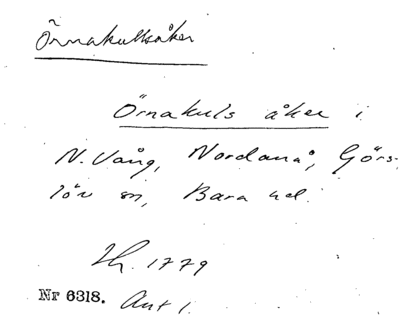 Örnakullsåker
Örnakuls åker i
N. Vång, Nordanå, Görs-
löv sn, Bara hd.
Lh. 1779
Nr 6318. Akt 1.